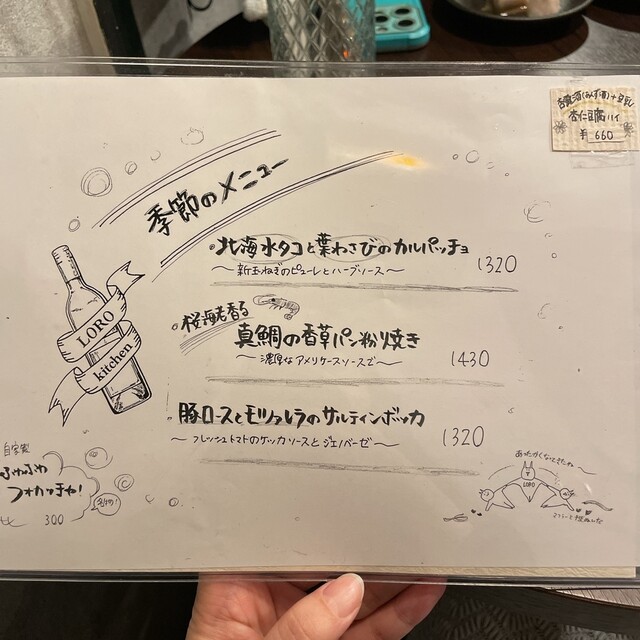 季節のメニュー
・北海水タコと葉わさびのカルパッチョ 1320
〜新玉ねぎのピューレとハーブソース〜
・桜海老香る
真鯛の香草パン粉焼き 1430
〜濃厚なアメリケースソースで〜
・豚ロースとモツァレラのサルティンボッカ 1320
〜フレッシュトマトのケッカソースとジェノベーゼ〜
LORO
kitchen
自家製
ふわふわ
フォカッチャ!
300
杏仁豆腐ハイ
¥660
あったかくなってきたね〜
LORO